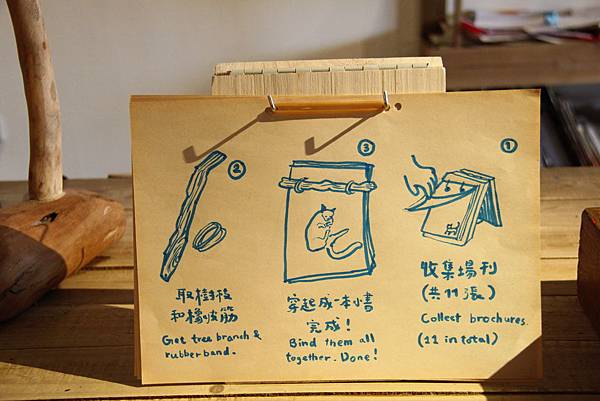 ①
收集場刊
(共11張)
Collect brochures.
(11 in total)
②
取樹枝
和橡皮筋
Get tree branch &
rubber band.
③
穿起成一本小書
完成！
Bind them all
together. Done!